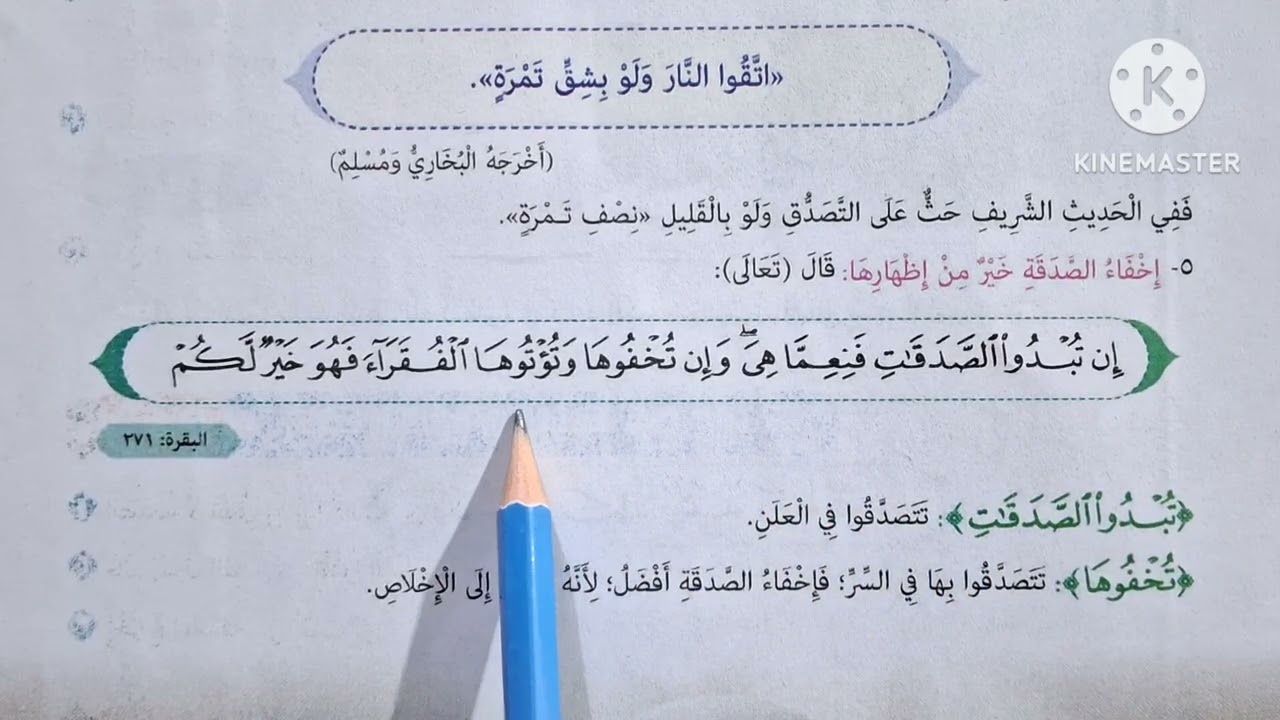 «اتَّقُوا النَّارَ وَلَوْ بِشِقِّ تَمْرَةٍ».
KINEMASTER
(أَخْرَجَهُ الْبُخَارِيُّ وَمُسْلِمٌ)
فَفِي الْحَدِيثِ الشَّرِيفِ حَثٌّ عَلَى التَّصَدُّقِ وَلَوْ بِالْقَلِيلِ «نِصْفِ تَمْرَةٍ».
٥- إِخْفَاءُ الصَّدَقَةِ خَيْرٌ مِنْ إِظْهَارِهَا: قَالَ (تَعَالَى):
إِن تُبْدُوا۟ ٱلصَّدَقَٰتِ فَنِعِمَّا هِىَ ۖ وَإِن تُخْفُوهَا وَتُؤْتُوهَا ٱلْفُقَرَآءَ فَهُوَ خَيْرٌ لَّكُمْ
البقرة: ٢٧١
﴿تُبْدُوا۟ ٱلصَّدَقَٰتِ﴾: تَتَصَدَّقُوا فِي الْعَلَنِ.
﴿تُخْفُوهَا﴾: تَتَصَدَّقُوا بِهَا فِي السِّرِّ؛ فَإِخْفَاءُ الصَّدَقَةِ أَفْضَلُ؛ لِأَنَّهُ إِلَى الْإِخْلَاصِ.